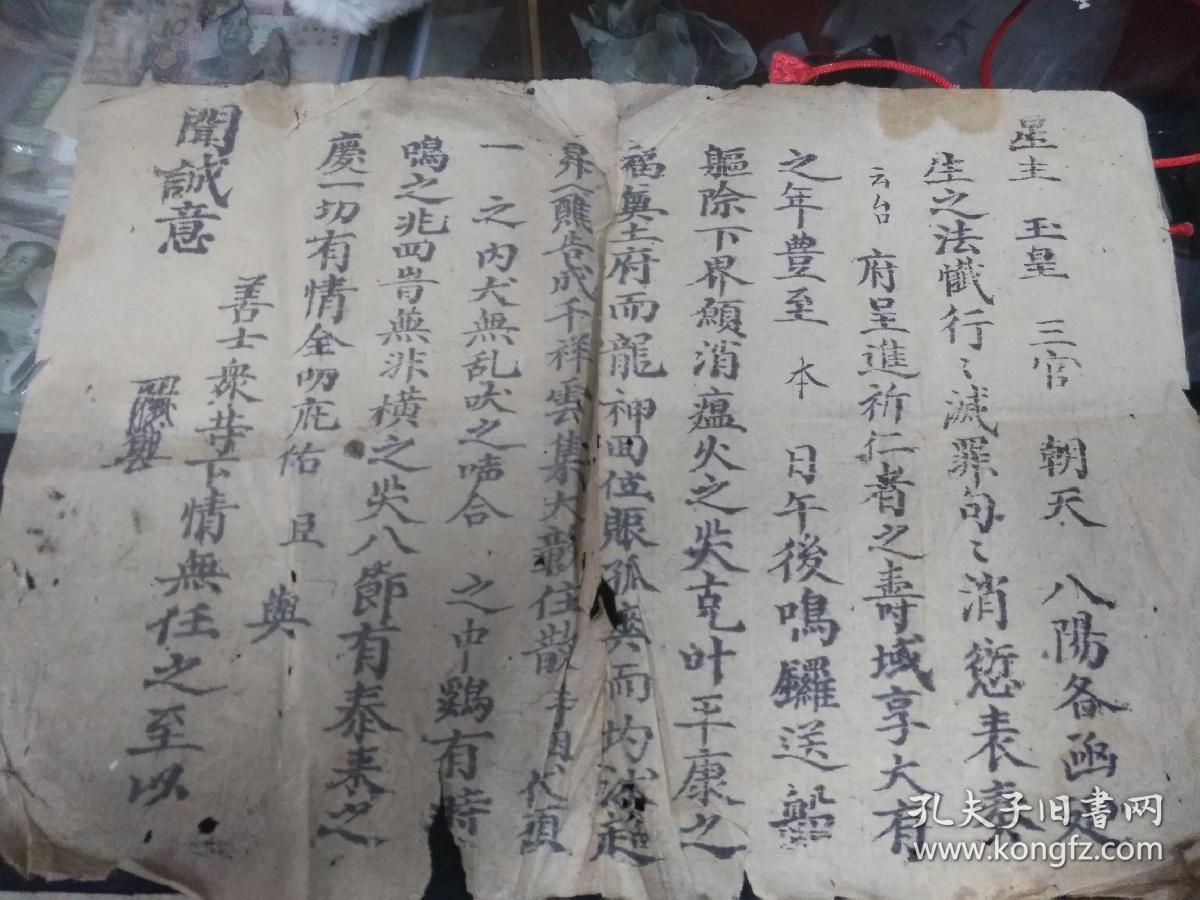 星主 玉皇 三官 朝天 八陽各函
生之法懺行〻滅罪句〻消愆表奏
云台府呈進祈仁者之壽域享大有
之年豊至 本 日午後鳴鑼送船
軀除下界願消瘟火之灾克叶平康之
福奠土府而龍神回位賑孤爽而均沾超
昇醮告成千祥雲集大彰佳散
一 之内犬無乱吠之啼合 之中鷄有時
鳴之兆四旹無非橫之灾八節有泰來之
慶一切有情全叨庇佑 臣 與
善士衆等下情無任之至以
聞誠意
孔夫子旧书网
www.kongfz.com